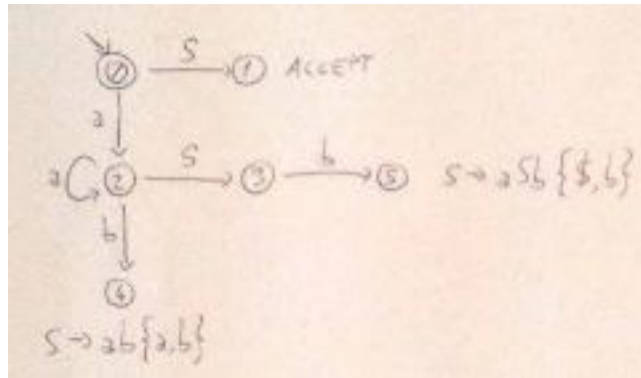 0 S 1 ACCEPT
a
a 2 S 3 b 5 S → aSb {$, b}
b
4
S → ab {a, b}